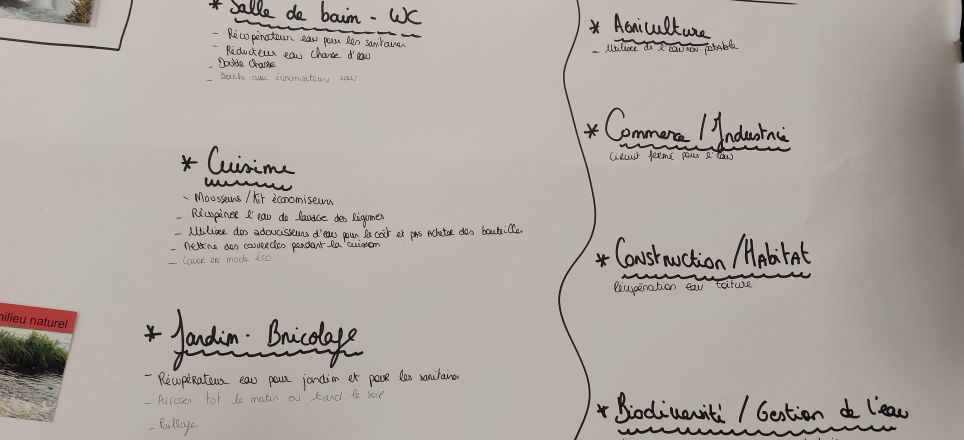 * Salle de bain - WC
- Récupérateur eau pour les sanitaires
- Réducteur eau chasse d'eau
- Double chasse
- Douche avec économisateur eau
* Cuisine
- Mousseurs / Kit économiseurs
- Récupérer l'eau de lavage des légumes
- Utiliser des adoucisseurs d'eau pour le coût et pas acheter des bouteilles
- Mettre des couvercles pendant la cuisson
- Laver en mode éco
milieu naturel
* Jardin - Bricolage
- Récupérateur eau pour jardin et pour les sanitaires
- Arroser tot le matin ou tard le soir
- Paillage
* Agriculture
- Utiliser de l'eau non potable
* Commerce / Industrie
Circuit fermé pour l'eau
* Construction / Habitat
Récupération eau toiture
* Biodiversité / Gestion de l'eau